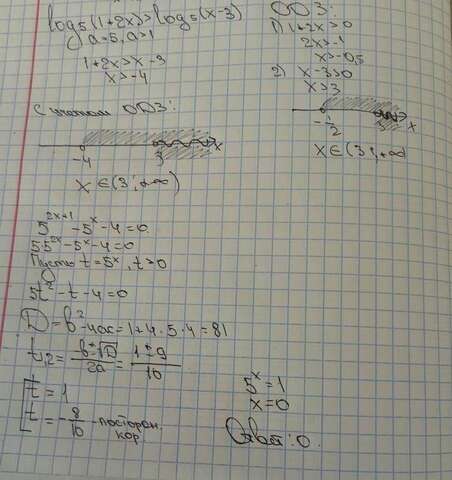 log₅(1+2x)>log₅(x-3)
a=5, a>1
1+2x>x-3
x>-4
ОДЗ:
1) 1+2x>0
2x>-1
x>-0,5
2) x-3>0
x>3
-1/2 3 x
x∈(3;+∞
С учетом ОДЗ:
-4 3 x
x∈(3;+∞)
5^(2x+1)-5^x-4=0
5·5^(2x)-5^x-4=0
Пусть t=5^x, t>0
5t²-t-4=0
D=b²-4ac=1+4·5·4=81
t₁,₂=(b±√D)/2a=(1±9)/10
[t=1
[t=-8/10 -посторон.
кор.
5^x=1
x=0
Ответ: 0.